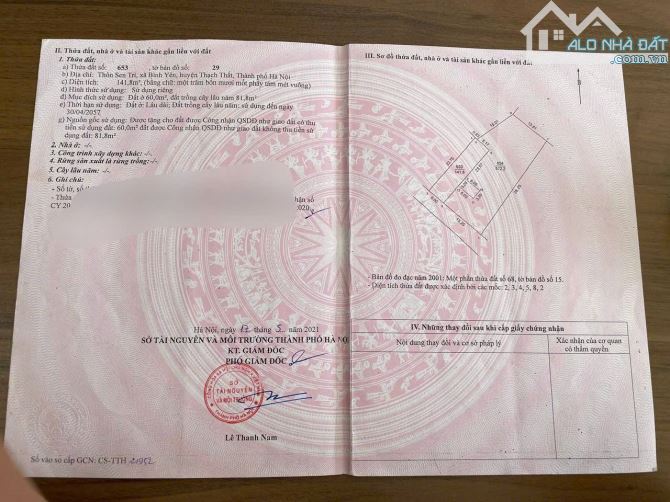 ALO NHÀ ĐẤT
II. Thửa đất, nhà ở và tài sản khác gắn liền với đất
1. Thửa đất:
a) Thửa đất số: 653 , tờ bản đồ số: 29
b) Địa chỉ: Thôn Sen Trì, xã Bình Yên, huyện Thạch Thất, Thành phố Hà Nội
c) Diện tích: 141,8m² (bằng chữ: một trăm bốn mươi mốt phẩy tám mét vuông)
d) Hình thức sử dụng: Sử dụng riêng
đ) Mục đích sử dụng: Đất ở 60,0m²; đất trồng cây lâu năm 81,8m²
e) Thời hạn sử dụng: Đất ở: Lâu dài; Đất trồng cây lâu năm: sử dụng đến ngày
30/04/2057
g) Nguồn gốc sử dụng: Được tặng cho đất được Công nhận QSDĐ như giao đất có thu
tiền sử dụng đất: 60,0m²; đất được Công nhận QSDĐ như giao đất không thu tiền sử
dụng đất: 81,8m²
2. Nhà ở: -/-
3. Công trình xây dựng khác: -/-
4. Rừng sản xuất là rừng trồng: -/-
5. Cây lâu năm: -/-
6. Ghi chú:
- Số tờ, số
- Thửa nhận số
CY 20 2020
Hà Nội, ngày 17 tháng 5 năm 2021
SỞ TÀI NGUYÊN VÀ MÔI TRƯỜNG THÀNH PHỐ HÀ NỘI
KT. GIÁM ĐỐC
PHÓ GIÁM ĐỐC
SỞ
TÀI NGUYÊN
VÀ MÔI TRƯỜNG
Lê Thanh Nam
Số vào sổ cấp GCN: CS-TTH 21952
III. Sơ đồ thửa đất, nhà ở và tài sản khác gắn liền với đất
653
141.8
- Bản đồ đo đạc năm 2001: Một phần thửa đất số 68, tờ bản đồ số 15.
- Diện tích thửa đất được xác định bởi các mốc: 2, 3, 4, 5, 8, 2
IV. Những thay đổi sau khi cấp giấy chứng nhận
Nội dung thay đổi và cơ sở pháp lý
Xác nhận của cơ quan
có thẩm quyền